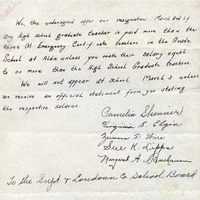 We, the undersigned offer our resignation March 3rd if
any high school graduate teacher is paid more than the
three (3) Emergency Certificate teachers in the Grade
School at Alda unless you make their salary equal
to or more than the High School Graduate teachers.
We will not appear at School March 3 unless
we receive an official statement from you stating
the respective salaries.
Pamelia
Virginia B. Elgin
F. Wire
Sue K. Lipps
Margaret A.
To the Supt & Loudoun Co School Board